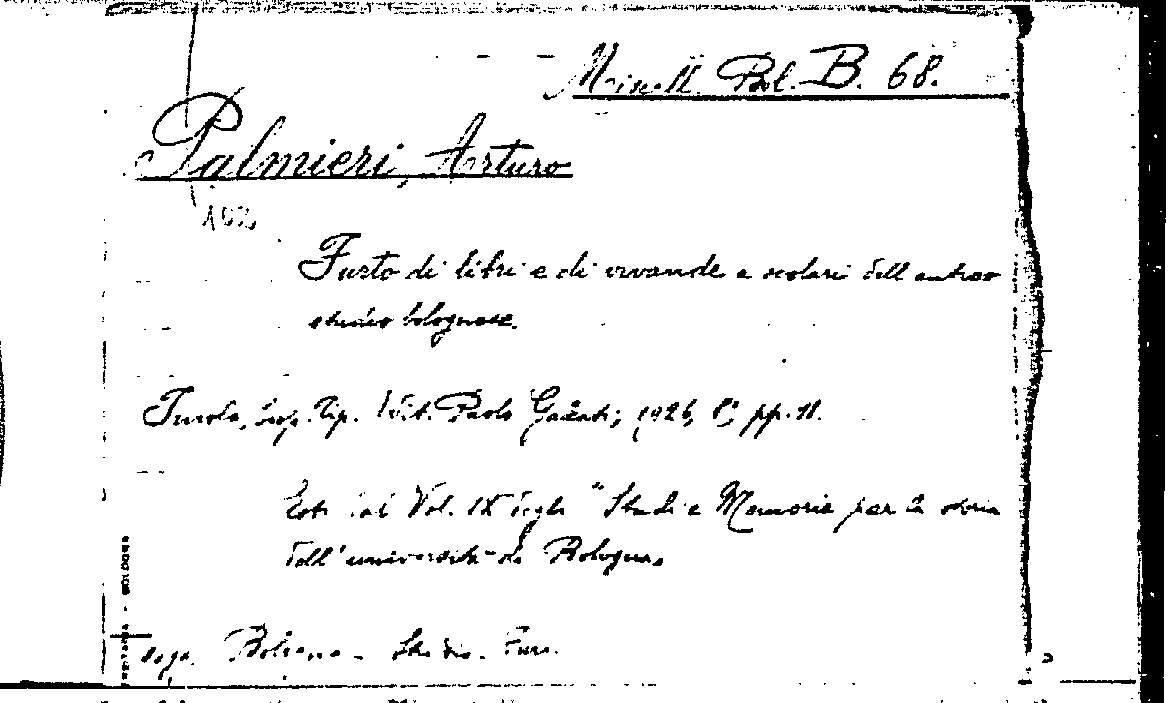 Miscell. Bol. B. 68.
Palmieri, Arturo
Furto di libri e di vivande a scolari dell'antico
studio bolognese.
Imola, Coop. Tip. Edit. Paolo Galeati, 1926, 8°, pp. 11.
Estr. dal Vol. IX degli "Studi e Memorie per la storia
dell'università di Bologna.
Bologna - Studio - Furti.